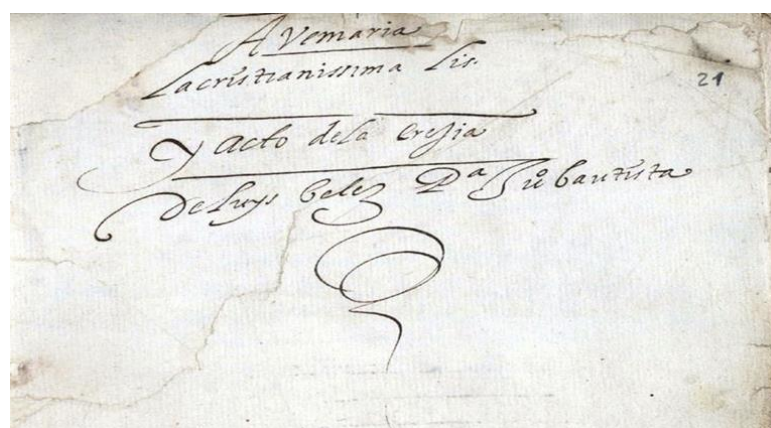 Avemaria
Lacristianissima Lis.
21
Y acto dela eregia
De Luys belez Pa Juo bautista